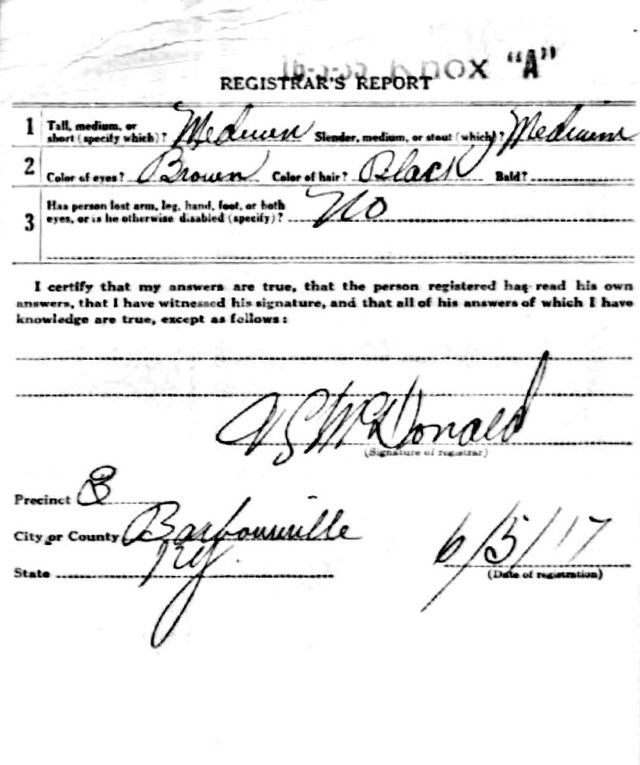 Knox "A"
REGISTRAR'S REPORT
1 Tall, medium, or short (specify which)? Medium Slender, medium, or stout (which)? Medium
2 Color of eyes? Brown Color of hair? Black Bald?
3 Has person lost arm, leg, hand, foot, or both eyes, or is he otherwise disabled (specify)? No
I certify that my answers are true, that the person registered has read his own
answers, that I have witnessed his signature, and that all of his answers of which I have
knowledge are true, except as follows:
McDonald
(Signature of registrar)
Precinct 8
City or County Barbourville
State Ky.
6/5/17
(Date of registration)